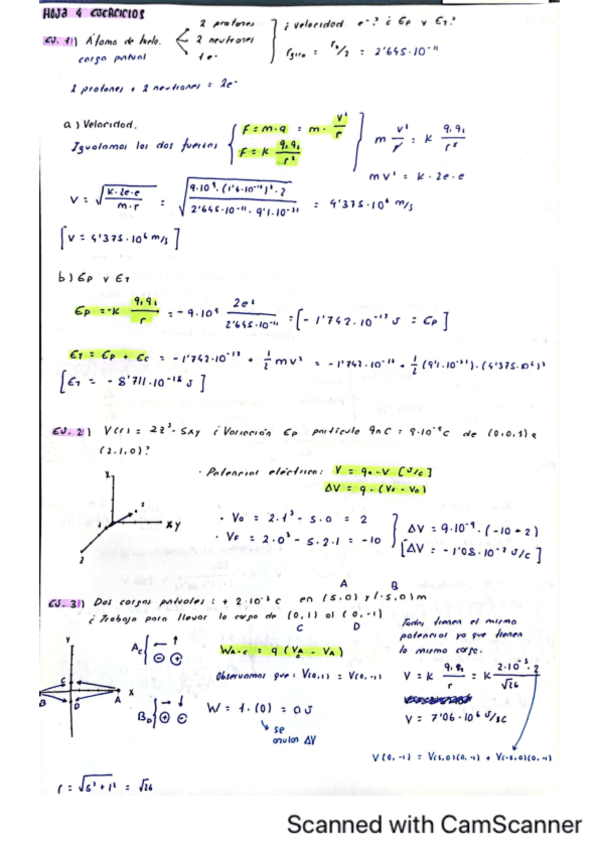 HOJA 4 EJERCICIOS
EJ. 1) Átomo de helio. 2 protones ¿ velocidad e⁻? ¿ Ep y ET?
carga puntual 2 neutrones r giro = r₀/2 = 2'645·10⁻¹¹
1 e⁻
2 protones + 2 neutrones = 2e⁻
a) Velocidad.
Igualamos las dos fuerzas F = m·a = m · v²/r m v²/r = k q·q₁/r²
F = k q·q₁/r² mv² = k·2e·e
V = √(k·2e·e / m·r) = √(9·10⁹·(1'6·10⁻¹⁹)²·2 / 2'645·10⁻¹¹·9'1·10⁻³¹) = 4'375·10⁶ m/s
[V = 4'375·10⁶ m/s]
b) Ep y ET
Ep = -k q·q₁/r = -9·10⁹ 2e²/2'645·10⁻¹¹ = [-1'742·10⁻¹⁷ J = Ep]
ET = Ep + Ec = -1'742·10⁻¹⁷ + 1/2 mv² = -1'742·10⁻¹⁷ + 1/2 (9'1·10⁻³¹)·(4'375·10⁶)²
[ET = -8'711·10⁻¹⁸ J]
EJ. 2) V(r) = 2z³ - 5xy ¿ Variación Ep partícula 9nC = 9·10⁻⁹C de (0,0,1) a
(2,1,0)?
· Potencial eléctrico: V = q·V [J/C]
ΔV = q·(VF - V₀)
· V₀ = 2·1³ - 5·0 = 2 ΔV = 9·10⁻⁹·(-10+2)
· VF = 2·0³ - 5·2·1 = -10 [ΔV = -1'08·10⁻⁷ J/C]
x
xy
z
A B
EJ. 3) Dos cargas puntuales: + 2·10⁻³ C en (5,0) y (-5,0)m
¿ Trabajo para llevar la carga de (0,1) al (0,-1)
C D
Todas tienen el mismo
potencial ya que tienen
la misma carga.
W = q (V - VA)
Observamos que: V(0,1) = V(0,-1)
V = k q·q₁/r = k 2·10⁻³·2/√26
W = 1·(0) = 0J
V = 7'06·10⁶ J/C
se
anulan ΔV
V(0,-1) = V(5,0)(0,-1) + V(-5,0)(0,-1)
r = √(5²+1²) = √26
Scanned with CamScanner